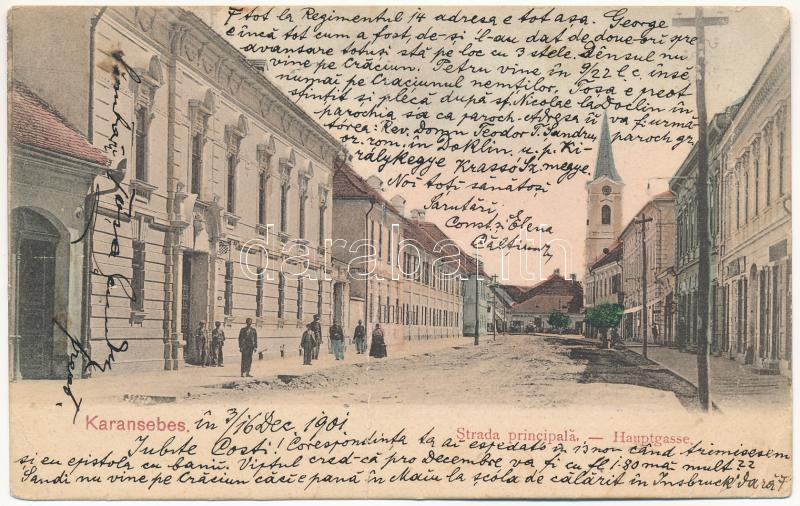 F tot la Regimentul 14 adresa e tot așa. George
e încă tot cum a fost de-și l'au dat de doue ori spre
avansare totuși stă pe loc cu 3 stele. Dênsul nu
vine pe Crăciun. Petru vine în 9/22 l. c. însĕ
numai pe Craciunul nemților, Toșa e preot
sfințit și plecă după sf. Nicolae la Doclin în
parochia sa ca paroch. Adresa îi va fi urmă
tórea: Rev. Domn Teodor T. Sandru, paroch gr.
or. rom. în Doklin. u. p. Ki-
rálykegye Krassó Sz. megye.
Noi toți sănătoși
Sarutări,
Const. Elena
Karansebes, în 3/16 Dec. 1901
Strada principală. — Hauptgasse.
Iubite Costi! Corespondinta ta ai espedat'o în 13 non când trimisesem
și eu epistola cu banii. Viptul cred-că pro Decembre va fi cu fl. 1·80 mă mult 22
Sandi nu vine pe Crăciun căci e pană în Maiu la școla de călărit în Insbruck
darabanth.com